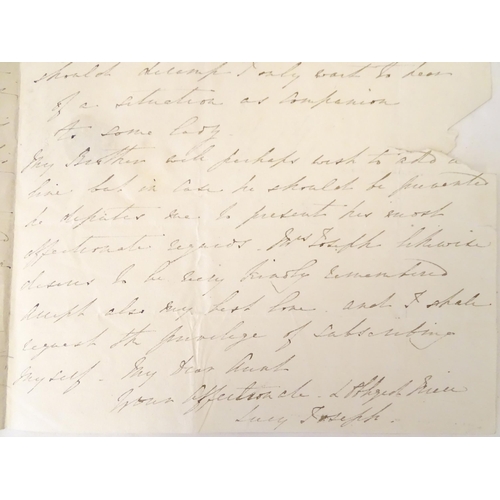 should decamp I only want to hear
of a situation as companion
to some lady.
My Brother will perhaps wish to add a
line but in case he should be prevented
he deputes me to present his most
affectionate regards. Mrs Joseph likewise
desires to be very kindly remembered
accept also my best love. and I shall
request the privilege of subscribing
myself. My Dear Aunt
Your Affectionate & Obliged Niece
Lucy Joseph.